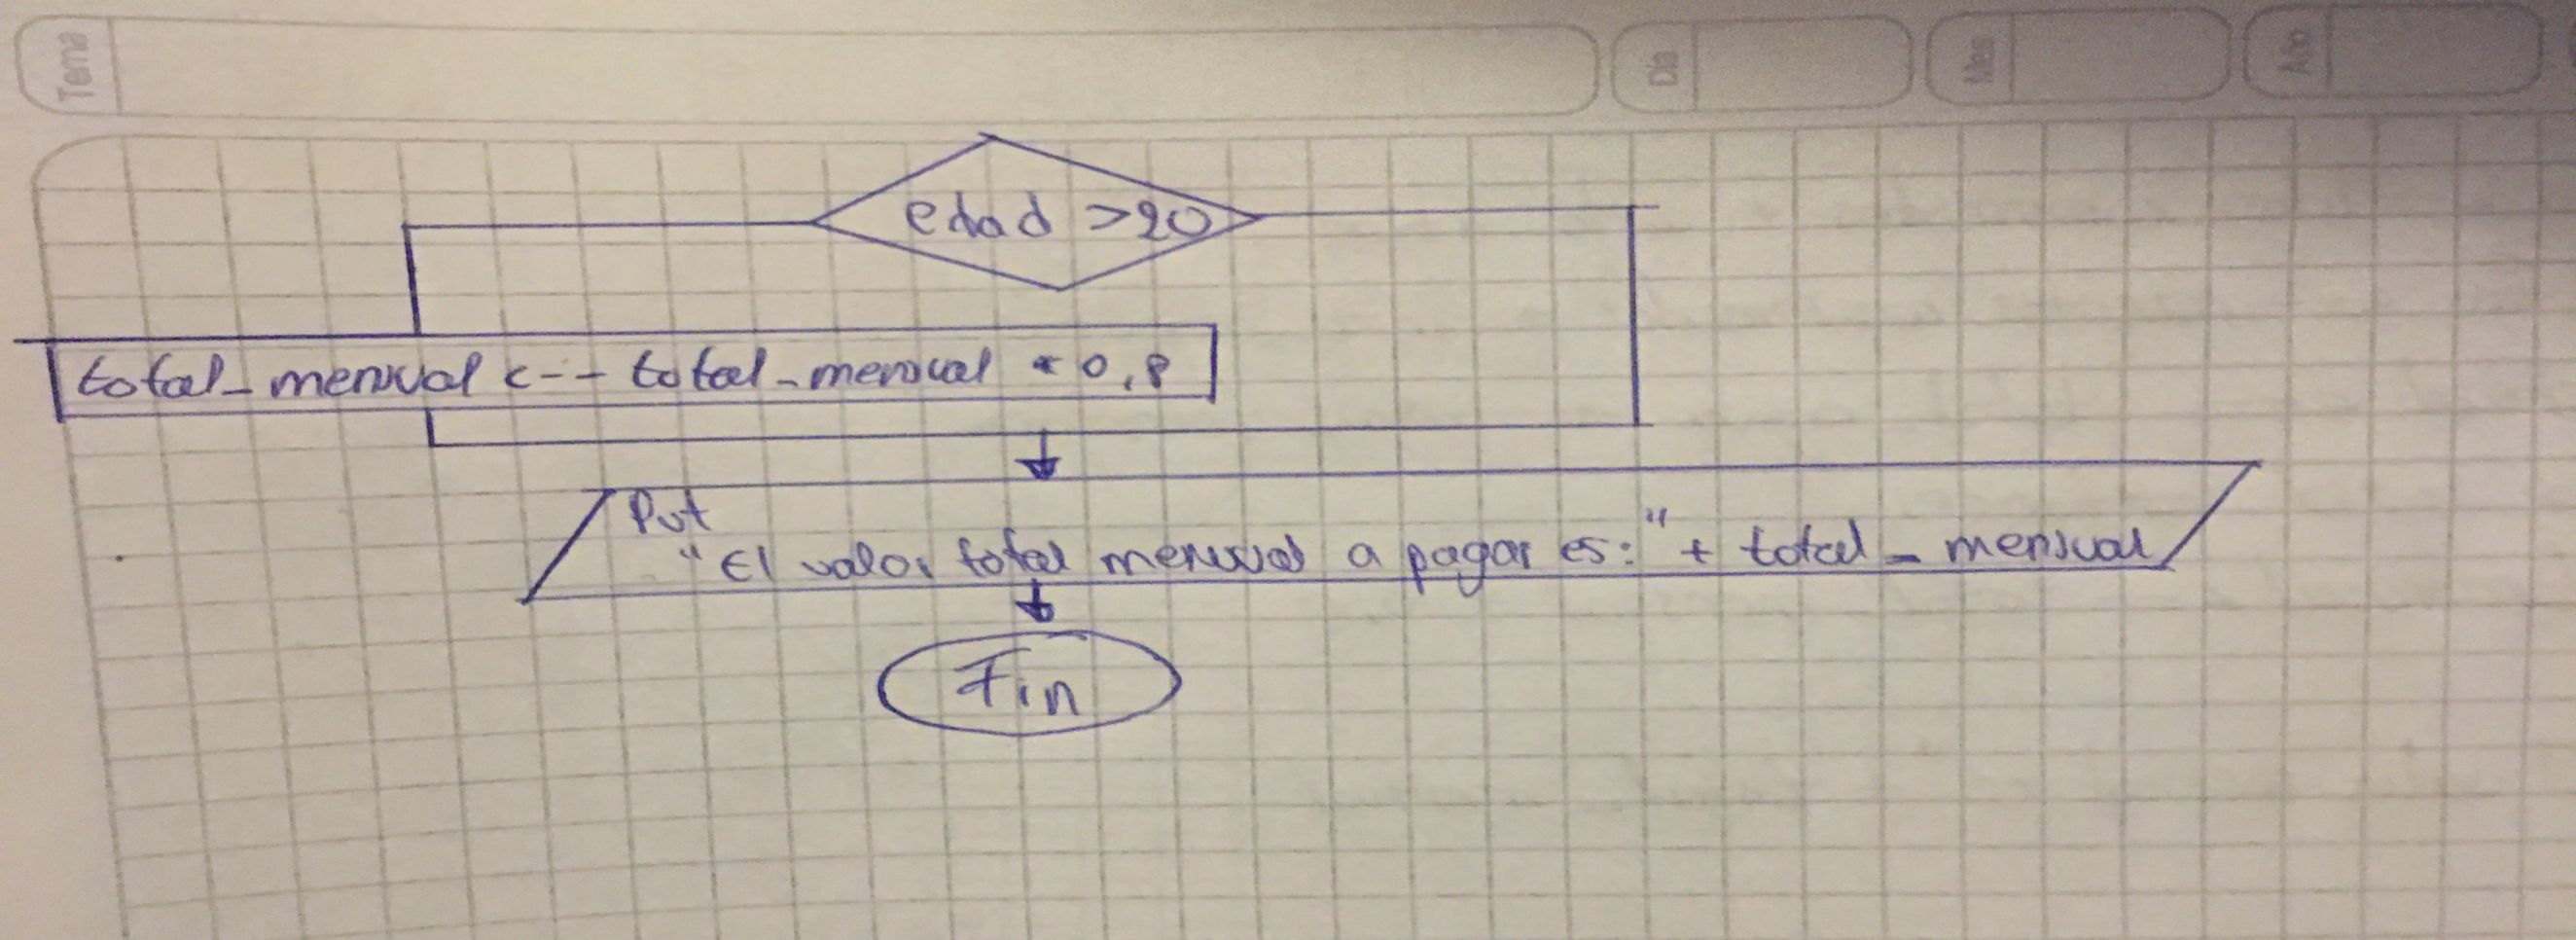 Tema
Día
Mes
Año
edad >20
total_mensual <-- total_mensual * 0,8
Put
"El valor total mensual a pagar es:" + total_mensual
Fin